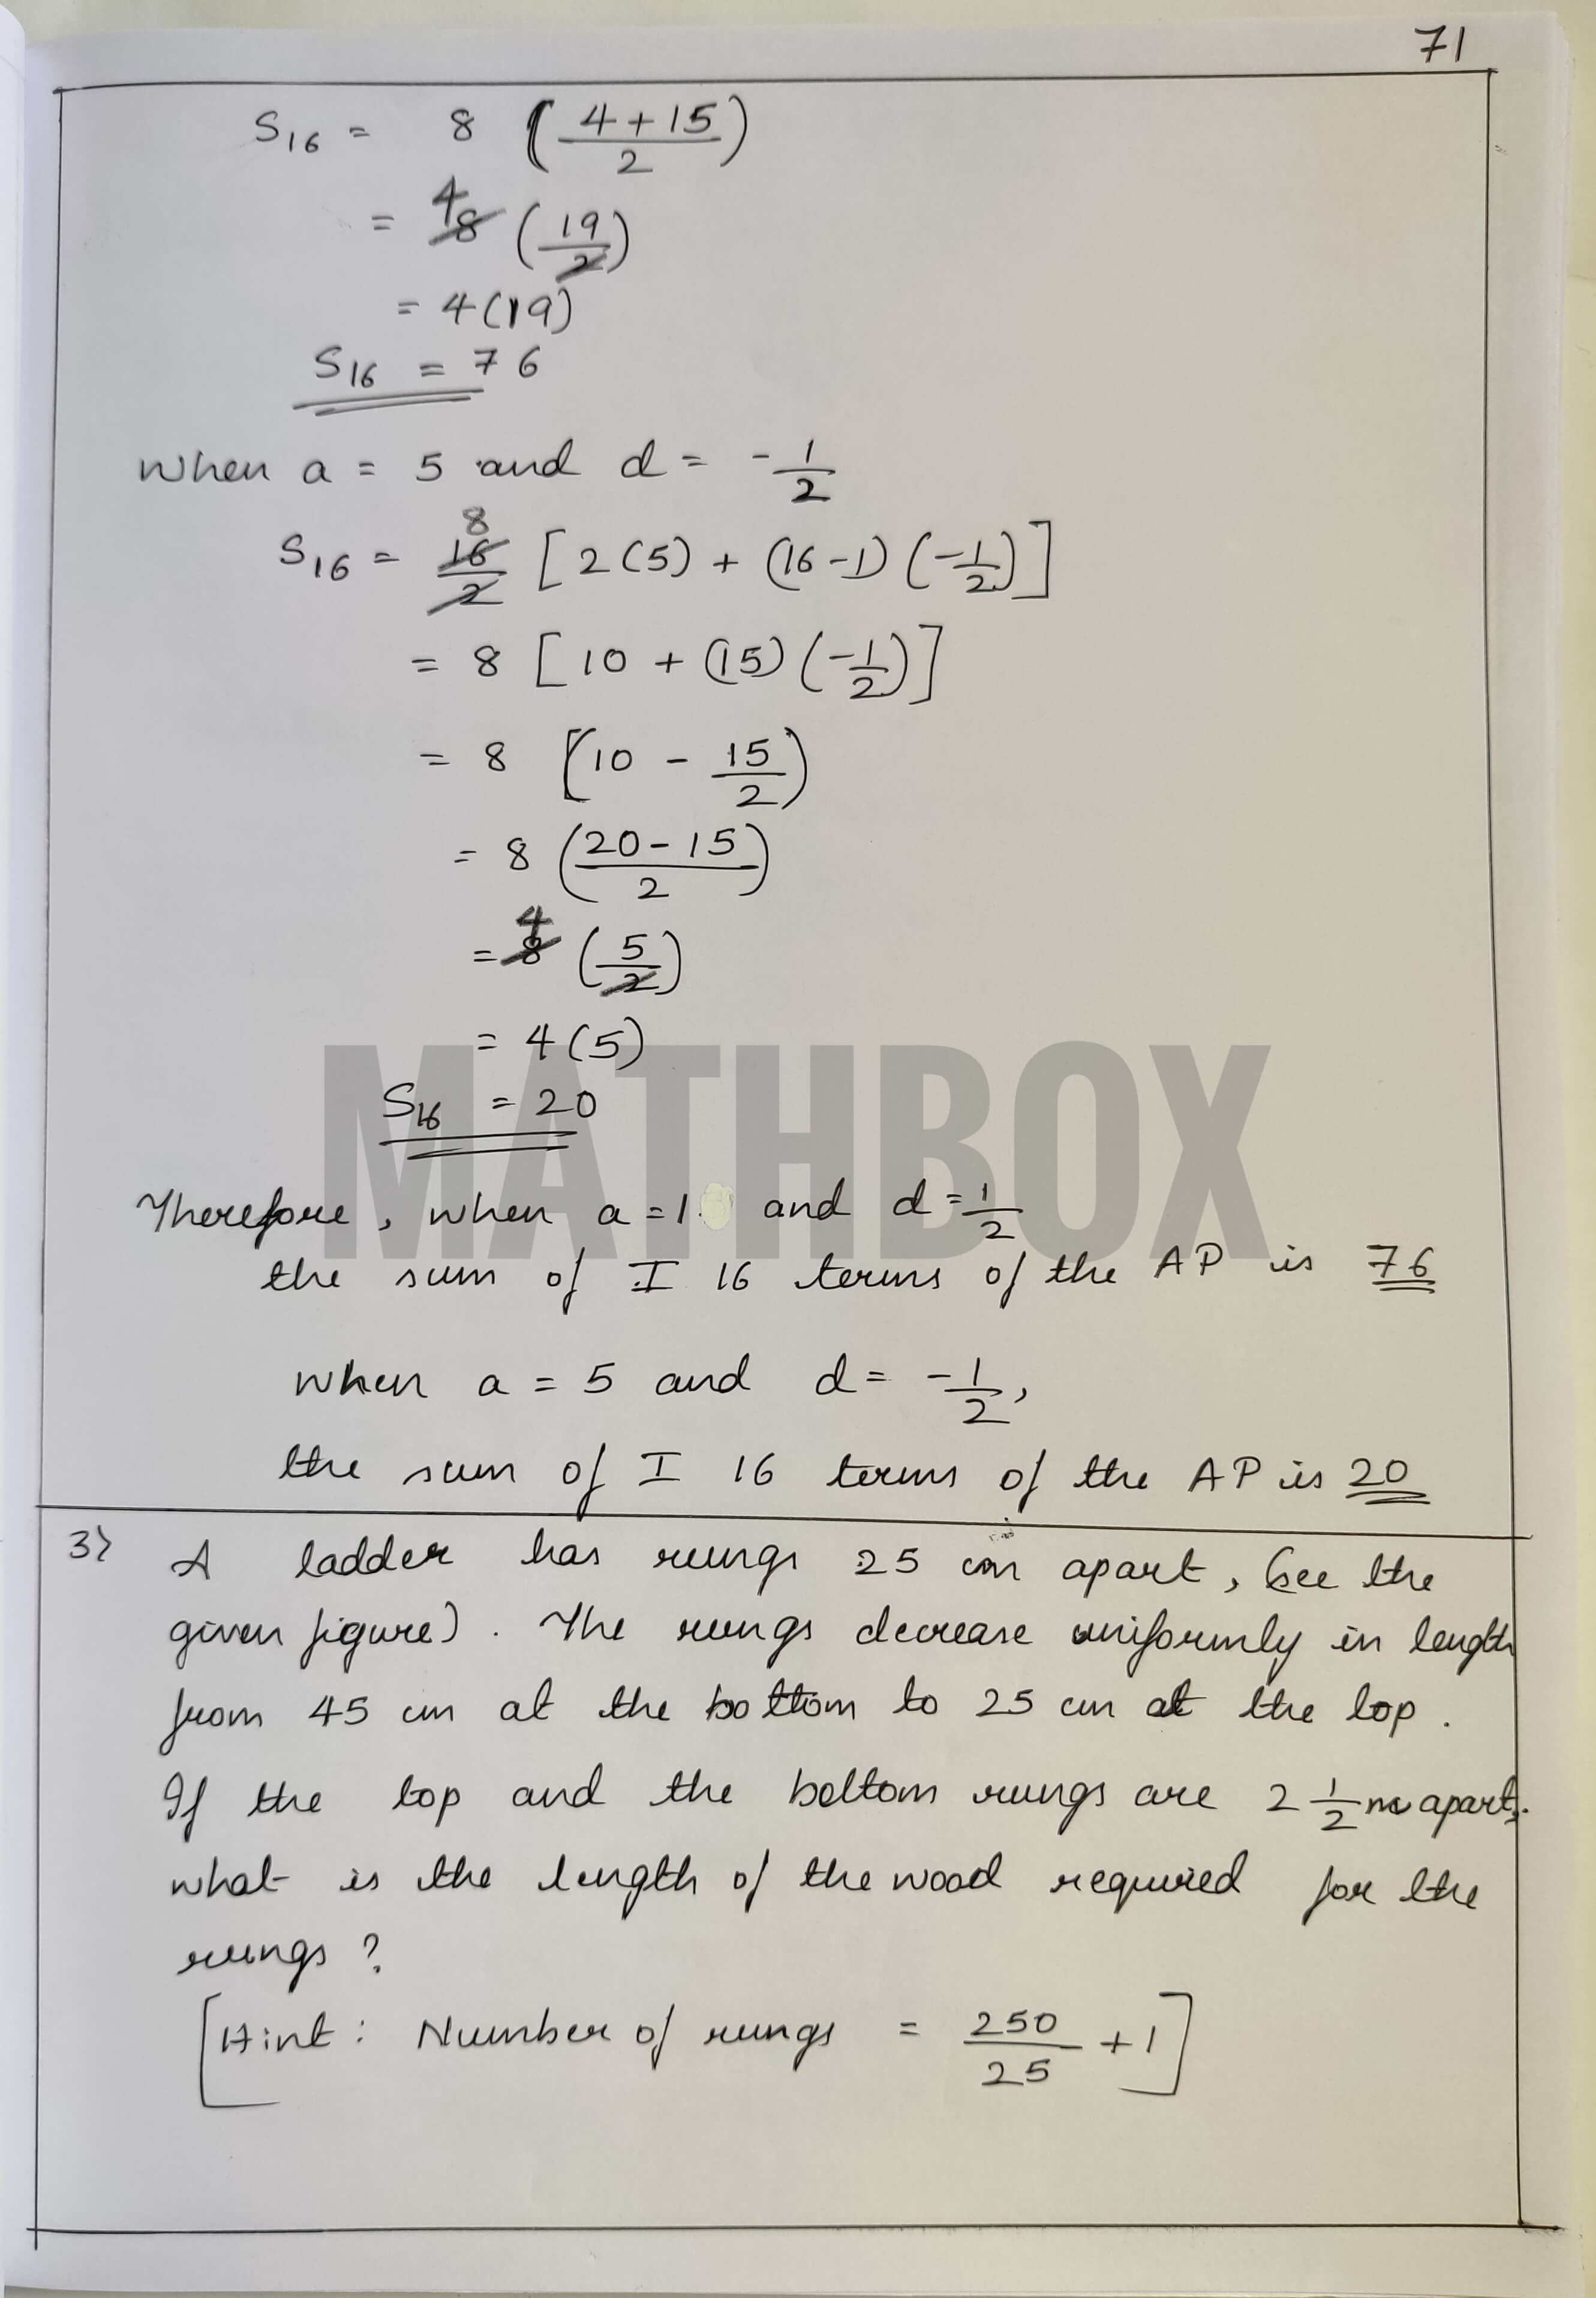 71
S₁₆ = 8 (4+15/2)
= 4 8 (19/2)
= 4(19)
S₁₆ = 76
When a = 5 and d = -1/2
S₁₆ = 8 16/2 [2(5) + (16-1)(-1/2)]
= 8 [10 + (15)(-1/2)]
= 8 [10 - 15/2)
= 8 (20-15/2)
= 4 8 (5/2)
= 4(5)
S₁₆ = 20
MATHBOX
Therefore, when a = 1 and d = 1/2
the sum of I 16 terms of the AP is 76
when a = 5 and d = -1/2,
the sum of I 16 terms of the AP is 20
3) A ladder has rungs 25 cm apart, (see the
given figure). The rungs decrease uniformly in length
from 45 cm at the bottom to 25 cm at the top.
If the top and the bottom rungs are 2 1/2 m apart,
what is the length of the wood required for the
rungs?
[Hint: Number of rungs = 250/25 + 1]